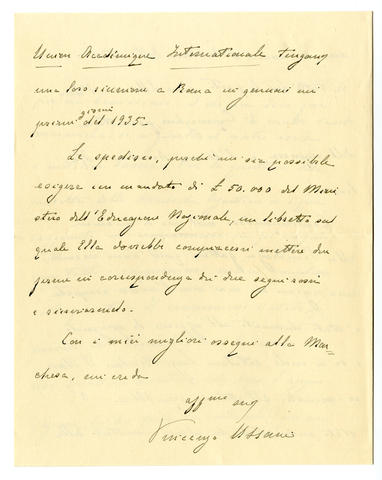 Union Académique Internationale tengano
una loro riunione a Roma in gennaio nei
primi giorni del 1935.
Le spedisco, perché mi sia possibile
esigere un mandato di £ 50.000 del Mini
stero dell'Educazione Nazionale, un libretto sul
quale Ella dovrebbe compiacersi mettere due
firme in corrispondenza dei due segni rossi
e rinviarmelo.
Con i miei migliori ossequi alla Mar=
chesa, mi creda
aff.mo
Vincenzo Ussani